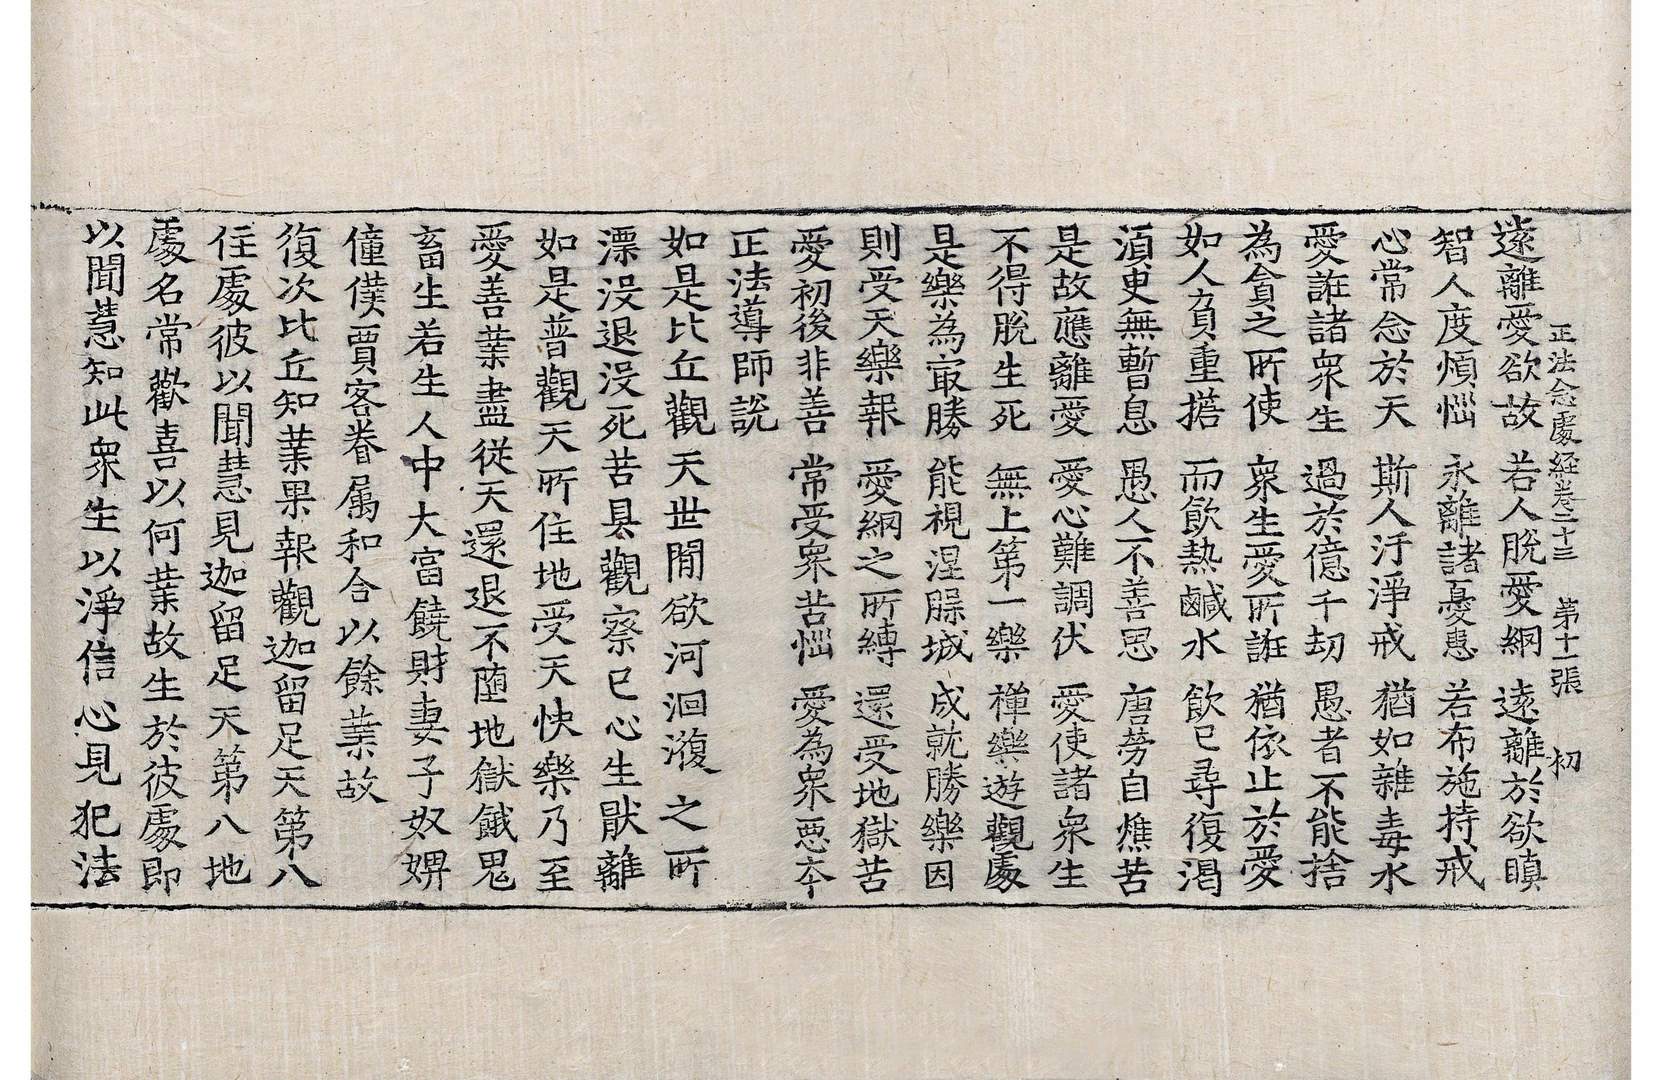 正法念處經卷二十三 第十一張 㓞
遠離愛欲故 若人脫愛網 遠離於欲瞋
智人度煩惱 永離諸憂患 若布施持戒
心常念於天 斯人汙淨戒 猶如雜毒水
愛誑諸衆生 過於億千劫 愚者不能捨
為貪之所使 衆生愛所誑 猶依止於愛
如人負重擔 而飲熱鹹水 飲已尋復渴
須臾無暫息 愚人不善思 唐勞自燋苦
是故應離愛 愛心難調伏 愛使諸衆生
不得脫生死 無上第一樂 禪樂遊觀處
是樂為㝡勝 能視涅槃城 成就勝樂因
則受天樂報 愛網之所縛 還受地獄苦
愛初後非善 常受衆苦惱 愛為衆惡本
正法導師說
如是比丘觀天世間欲河洄澓之所
漂沒退沒死苦具觀察已心生厭離
如是普觀天所住地受天快樂乃至
愛善業盡從天還退不墮地獄餓鬼
畜生若生人中大富饒財妻子奴婢
僮僕賈客眷属和合以餘業故
復次比丘知業果報觀迦留足天第八
住處彼以聞慧見迦留足天第八地
處名常歡喜以何業故生於彼處即
以聞慧知此衆生以淨信心見犯法